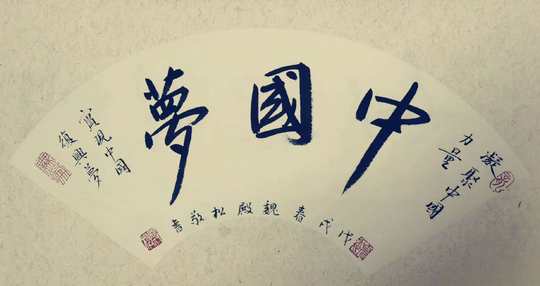 凝聚中國
力量
中國夢
實現中國
復興夢
戊戌春魏殿松敬書